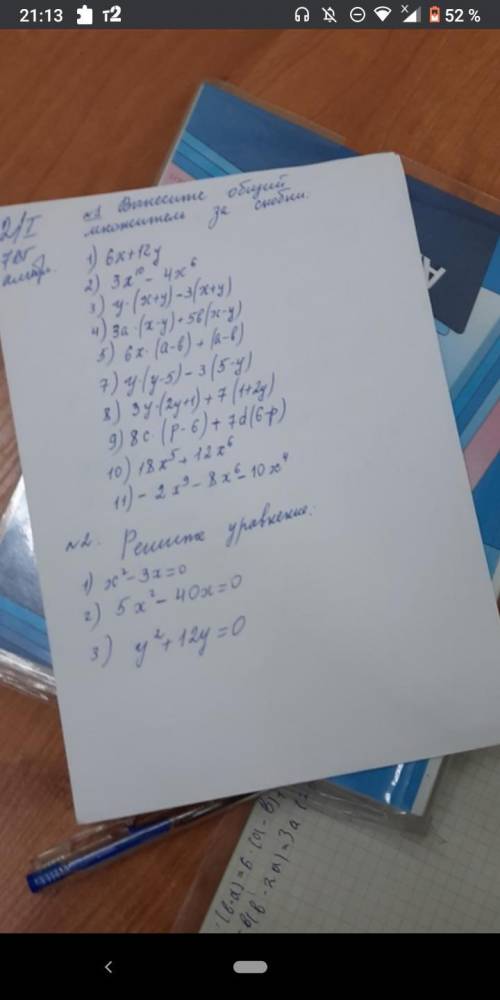 21:13 т2 52 %
2/I
7 кл
алгебр.
№1 Вынесите общий
множитель за скобки.
1) 6x+12y
2) 3x¹⁰ - 4x⁶
3) y·(x+y) - 3(x+y)
4) 3a·(x-y) + 5b(x-y)
5) 6x·(a-b) + (a-b)
7) y·(y-5) - 3(5-y)
8) 3y·(2y+1) + 7(1+2y)
9) 8c·(p-6) + 7d(6-p)
10) 18x⁵ + 12x⁶
11) - 2x⁹ - 8x⁶ - 10x⁴
№2. Решите уравнение:
1) x² - 3x=0
2) 5x² - 40x=0
3) y² + 12y=0